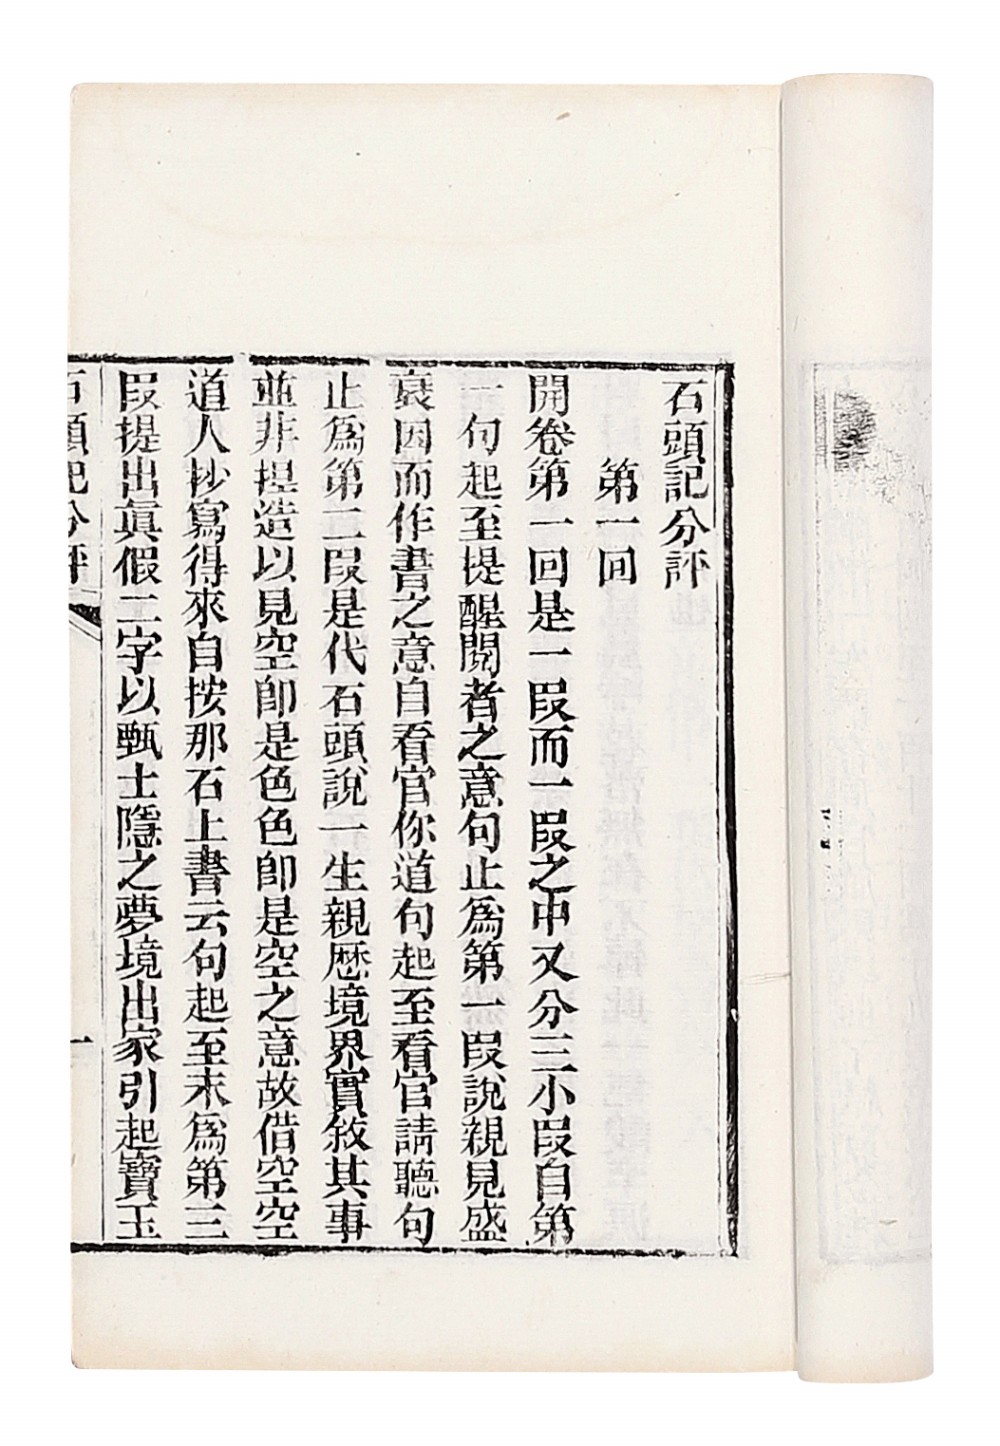 石頭記分評
第一回
開卷第一回是一叚而一叚之中又分三小叚自第
一句起至提醒閱者之意句止爲第一叚說親見盛
衰因而作書之意自看官你道句起至看官請聽句
止爲第二叚是代石頭說一生親歷境界實敘其事
並非揑造以見空卽是色色卽是空之意故借空空
道人抄寫得來自按那石上書云句起至末爲第三
叚提出眞假二字以甄士隱之夢境出家引起寶玉
石頭記分評
一